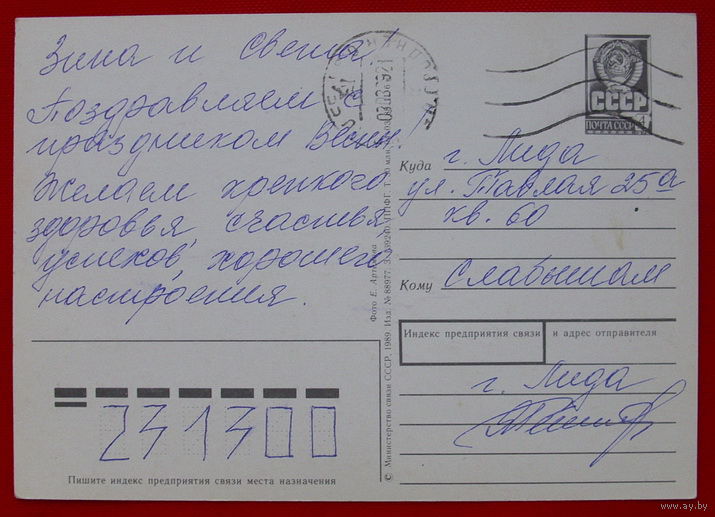 Зина и Света!
Поздравляем с
праздником Весны!
Желаем крепкого
здоровья, счастья,
успехов, хорошего
настроения.
СССР
ПОЧТА СССР 4
Куда г. Лида
ул. Тавлая 25а
кв. 60
Кому Славышам
Индекс предприятия связи и адрес отправителя
г. Лида
231300
Пишите индекс предприятия связи места назначения
Фото Е.
© Министерство связи СССР. 1989. Изд. № 88977.
www.ay.by